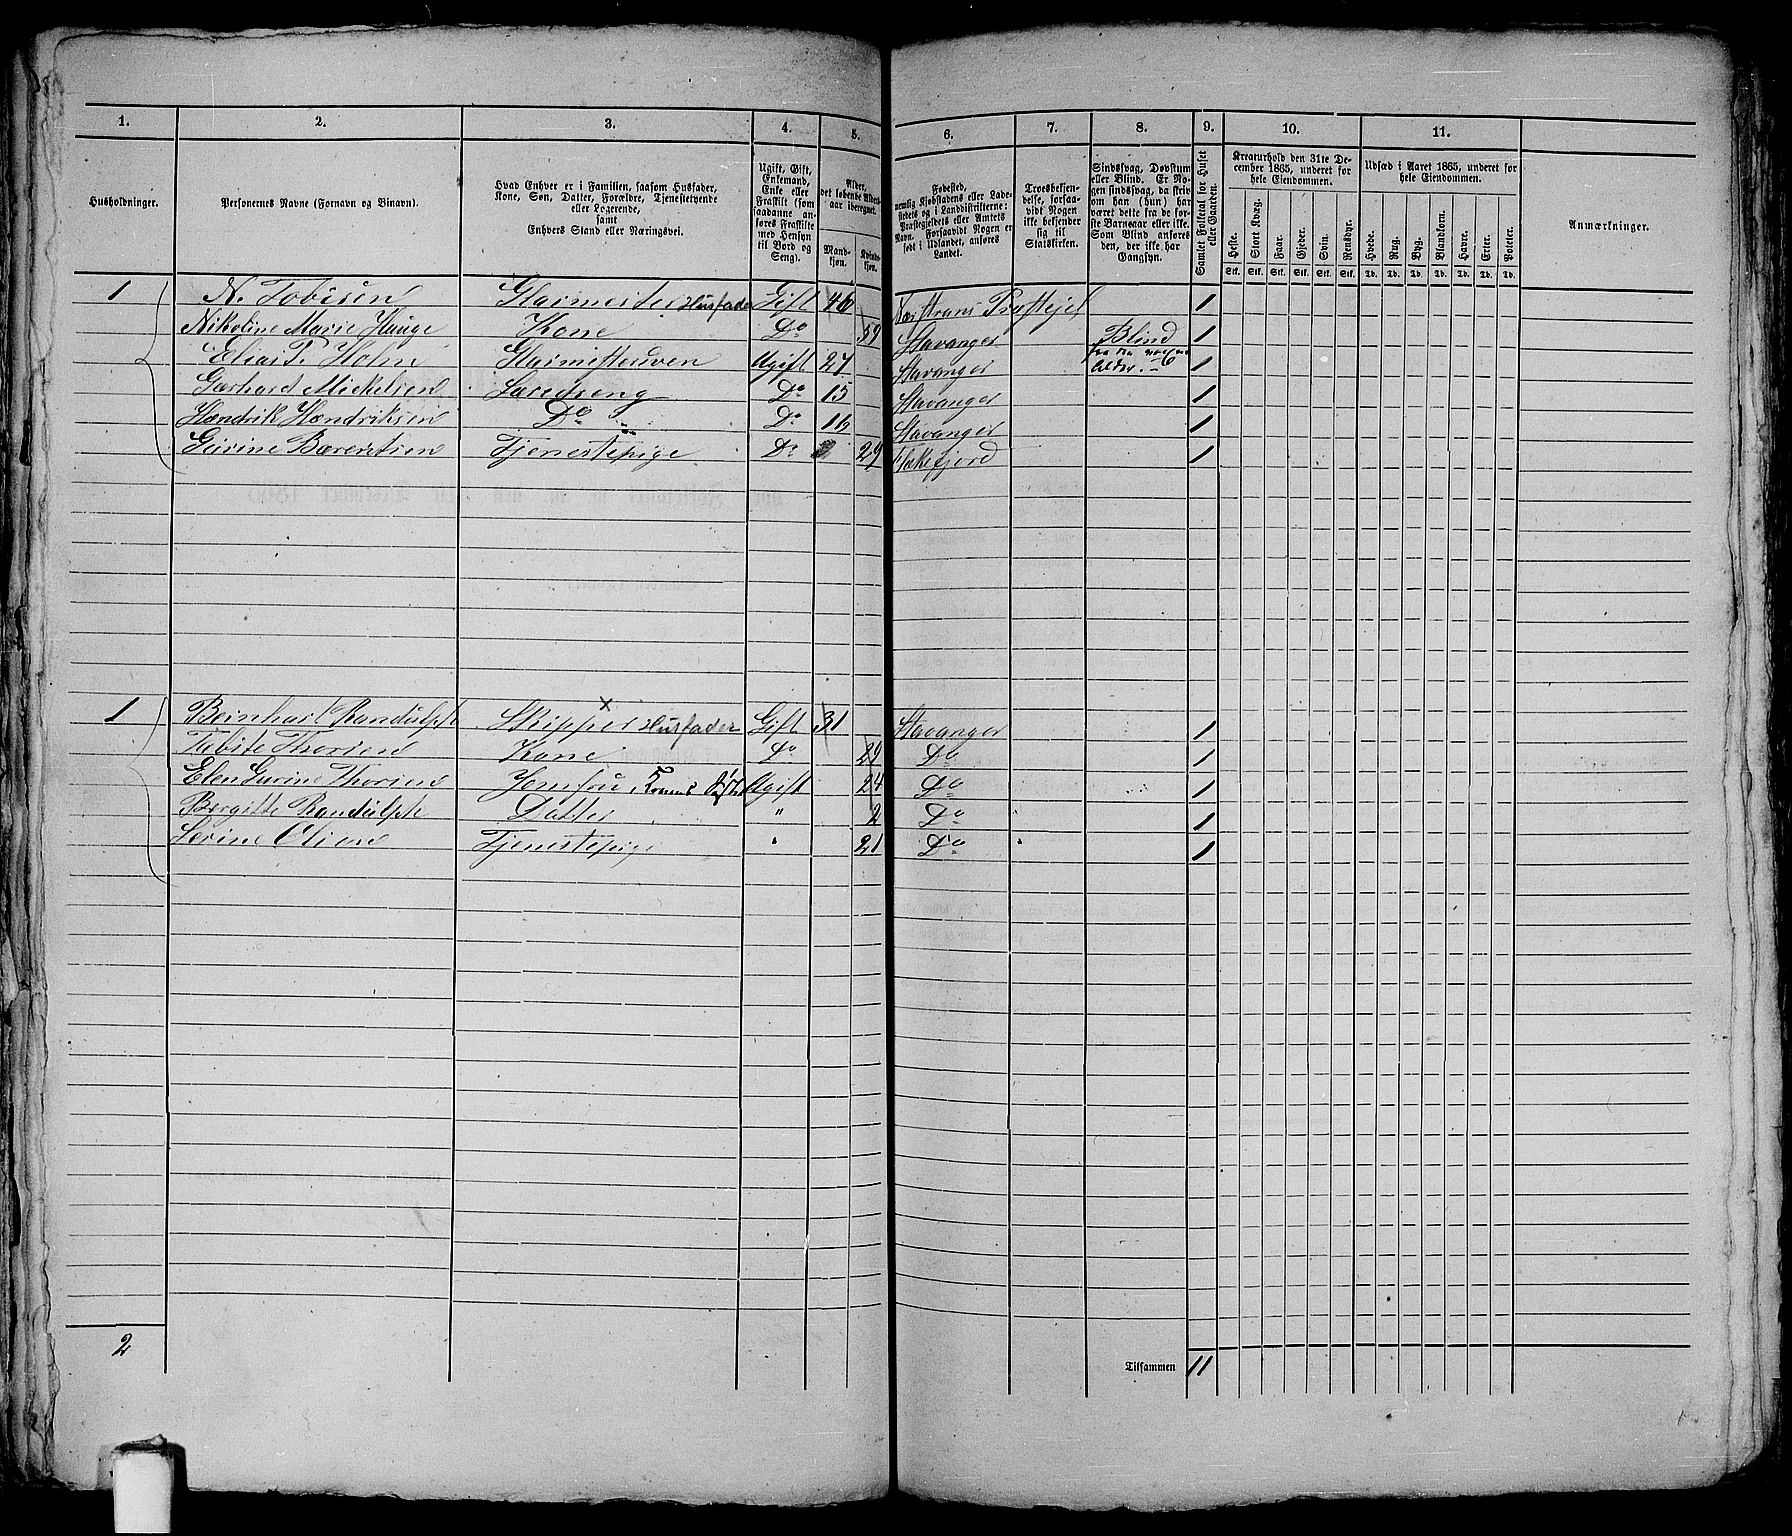 1. 2. 3. 4. 5. 6. 7. 8. 9. 10. 11.
Husholdninger.
Personernes Navne (Fornavn og Binavn).
Hvad Enhver er i Familien, saasom Husfader,
Kone, Søn, Datter, Forældre, Tjenestetyende
eller Logerende,
samt
Enhvers Stand eller Næringsvei.
Ugift, Gift,
Enkemand,
Enke eller
Fraskilt (som
saadanne an-
føres Fraskilte
med Hensyn
til Bord og
Seng).
Alder,
det løbende Alders-
aar iberegnet.
Mand-
kjøn.
Kvinde-
kjøn.
Fødested,
nemlig Kjøbstadens eller Lade-
stedets og i Landdistrikterne:
Præstegjeldets eller Amtets
Navn. Forsaavidt Nogen er
født i Udlandet, anføres
Landet.
Troesbekjen-
delse, forsaa-
vidt Nogen
ikke bekjender
sig til
Statskirken.
Sindssvag, Døvstum
eller Blind. Er No-
gen sindssvag, da skriv
om han (hun) har
været dette fra de før-
ste Barneaar eller ikke.
Som Blind anføres
den, der ikke har
Gangsyn.
Samlet Folketal for Huset
eller Gaarden.
Kreaturhold den 31te De-
cember 1865, underet for
hele Eiendommen.
Heste. Stort Kvæg. Faar. Gjeder. Svin. Rensdyr.
Stk. Stk. Stk. Stk. Stk. Stk.
Udsæd i Aaret 1865, underet for
hele Eiendommen.
Hvede. Rug. Byg. Blandkorn. Havre. Erter. Poteter.
Td. Td. Td. Td. Td. Td. Td.
Anmærkninger.
1 N. Tobisen Glarmester Husfader Gift 46 Præstegjel 1
Nikoline Marie Hauge Kone Do 59 Stavanger Blind 1
Elias T. Holm Glarmestersven Ugift 27 Stavanger fra den Alder 1
Gerhard Mickelsen Læredreng Do 15 Stavanger 1
Hendrik Hendriksen Do Do 16 Stavanger 1
Gurine Barentsen Tjenestepige Do 29 Flekkefjord 1
1 Beinhart Randulph Skipper Husfader Gift 31 Stavanger 1
Tabite Thorsen Kone Do 29 Do 1
Elen Gurine Thorsen Jomfru, Konens Søster Ugift 24 Do 1
Bergitte Randulph Datter " 2 Do 1
Serine Olsen Tjenestepige " 21 Do 1
2
Tilsammen 11